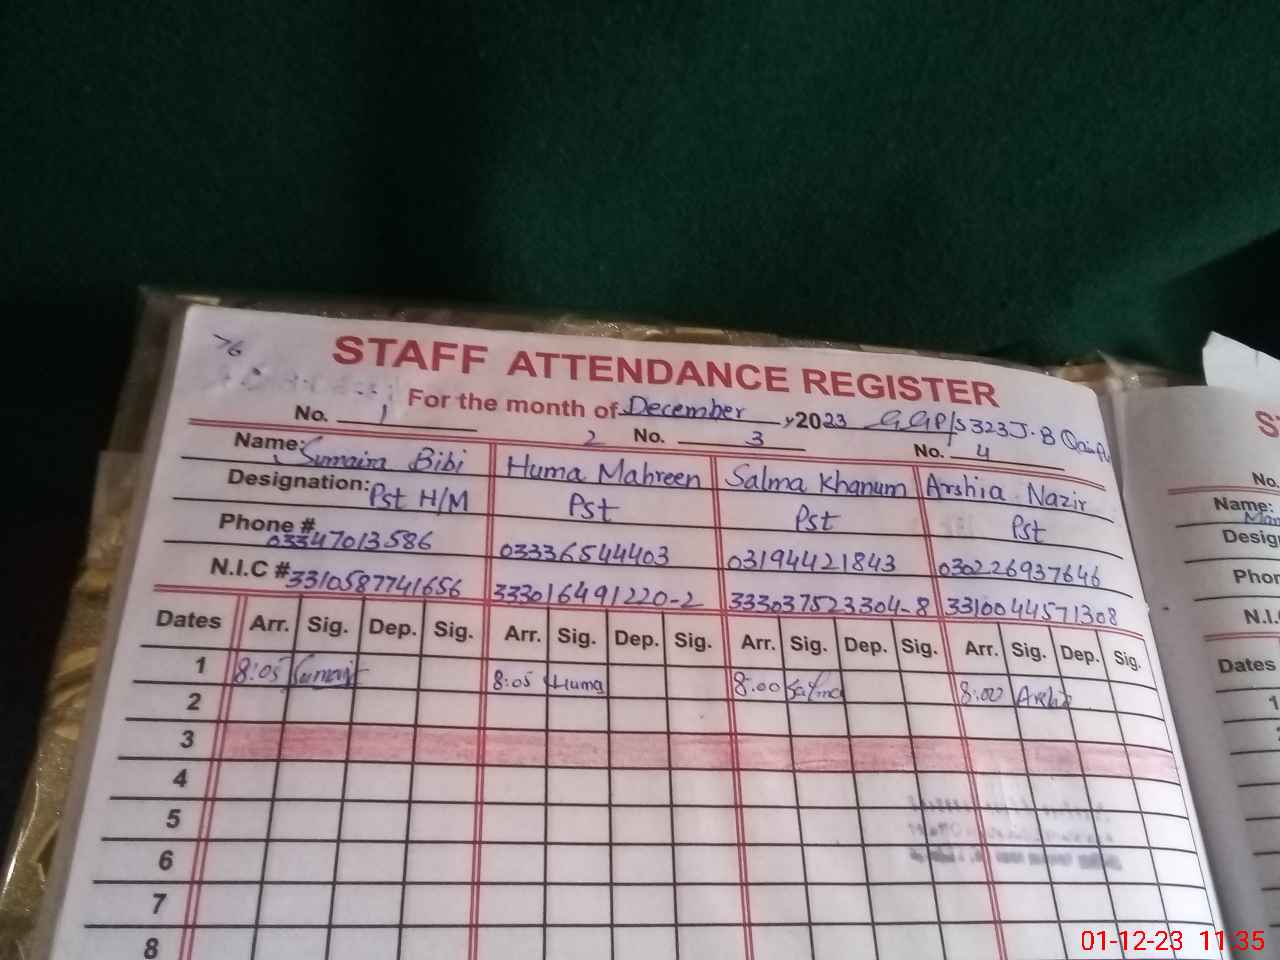 76
STAFF ATTENDANCE REGISTER
For the month of December 2023 GGP/S 323 J.B
No. 1 2 No. 3 No. 4
Name: Sumaira Bibi Huma Mahreen Salma Khanum Arshia Nazir
Designation: Pst H/M Pst Pst Pst
Phone # 03347013586 03336544403 03194421843 030226937646
N.I.C # 3310587741656 333016491220-2 333037523304-8 3310044571308
Dates Arr. Sig. Dep. Sig. Arr. Sig. Dep. Sig. Arr. Sig. Dep. Sig. Arr. Sig. Dep. Sig.
1 8:05 Sumaira 8:05 Huma 8:00 Salma 8:00 Arshia
2
3
4
5
6
7
8
No.
Name:
Phon
N.I.
Dates
1
01-12-23 11:35